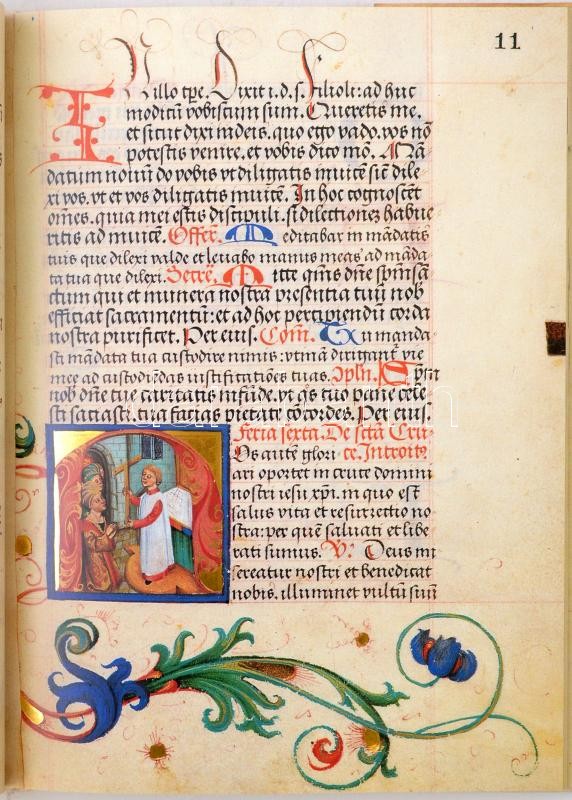 11
In illo tp̄e. Dixit i. d. s. Filioli: ad huc
modicū vobiscum sum. Queretis me.
et sicut dixi iudeis. quo ego vado. vos nō
potestis venire. et vobis dico mō. Mā
datum nouū do vobis vt diligatis inuicē sic̄ dile
xi vos. vt et vos diligatis inuicē. In hoc cognoscēt
om̄es. quia mei estis discipuli. si dilectionez habue
ritis ad inuicē. Offer̄. Meditabar in mādatis
tuis que dilexi valde et leuabo manus meas ad māda
ta tua que dilexi. Secre̅. Mitte quis dn̄e sp̄m sā
ctum qui et munera nostra presentia tuū nob
efficiat sacramentū: et ad hoc percipiendū corda
nostra purificet. Per eius. Com̄. Tu manda
sti mādata tua custodire nimis: vtinā dirigant̄ vie
mee ad custodiēdas iustificatiōes tuas. Spm̄
nob dn̄e tue caritatis infūde. vt qs tuo pane cele
sti satiasti. tua facias pietate cōcordes. Per eius.
Feria sexta. De sc̄tā Cru
Os autē glori ce. Introit
ari oportet in cruce domini
nostri iesu xp̄i. in quo est
salus vita et resurrectio no
stra: per quē saluati et libe
rati sumus. V. Deus mi
sereatur nostri et benedicat
nobis. illuminet vultū suū